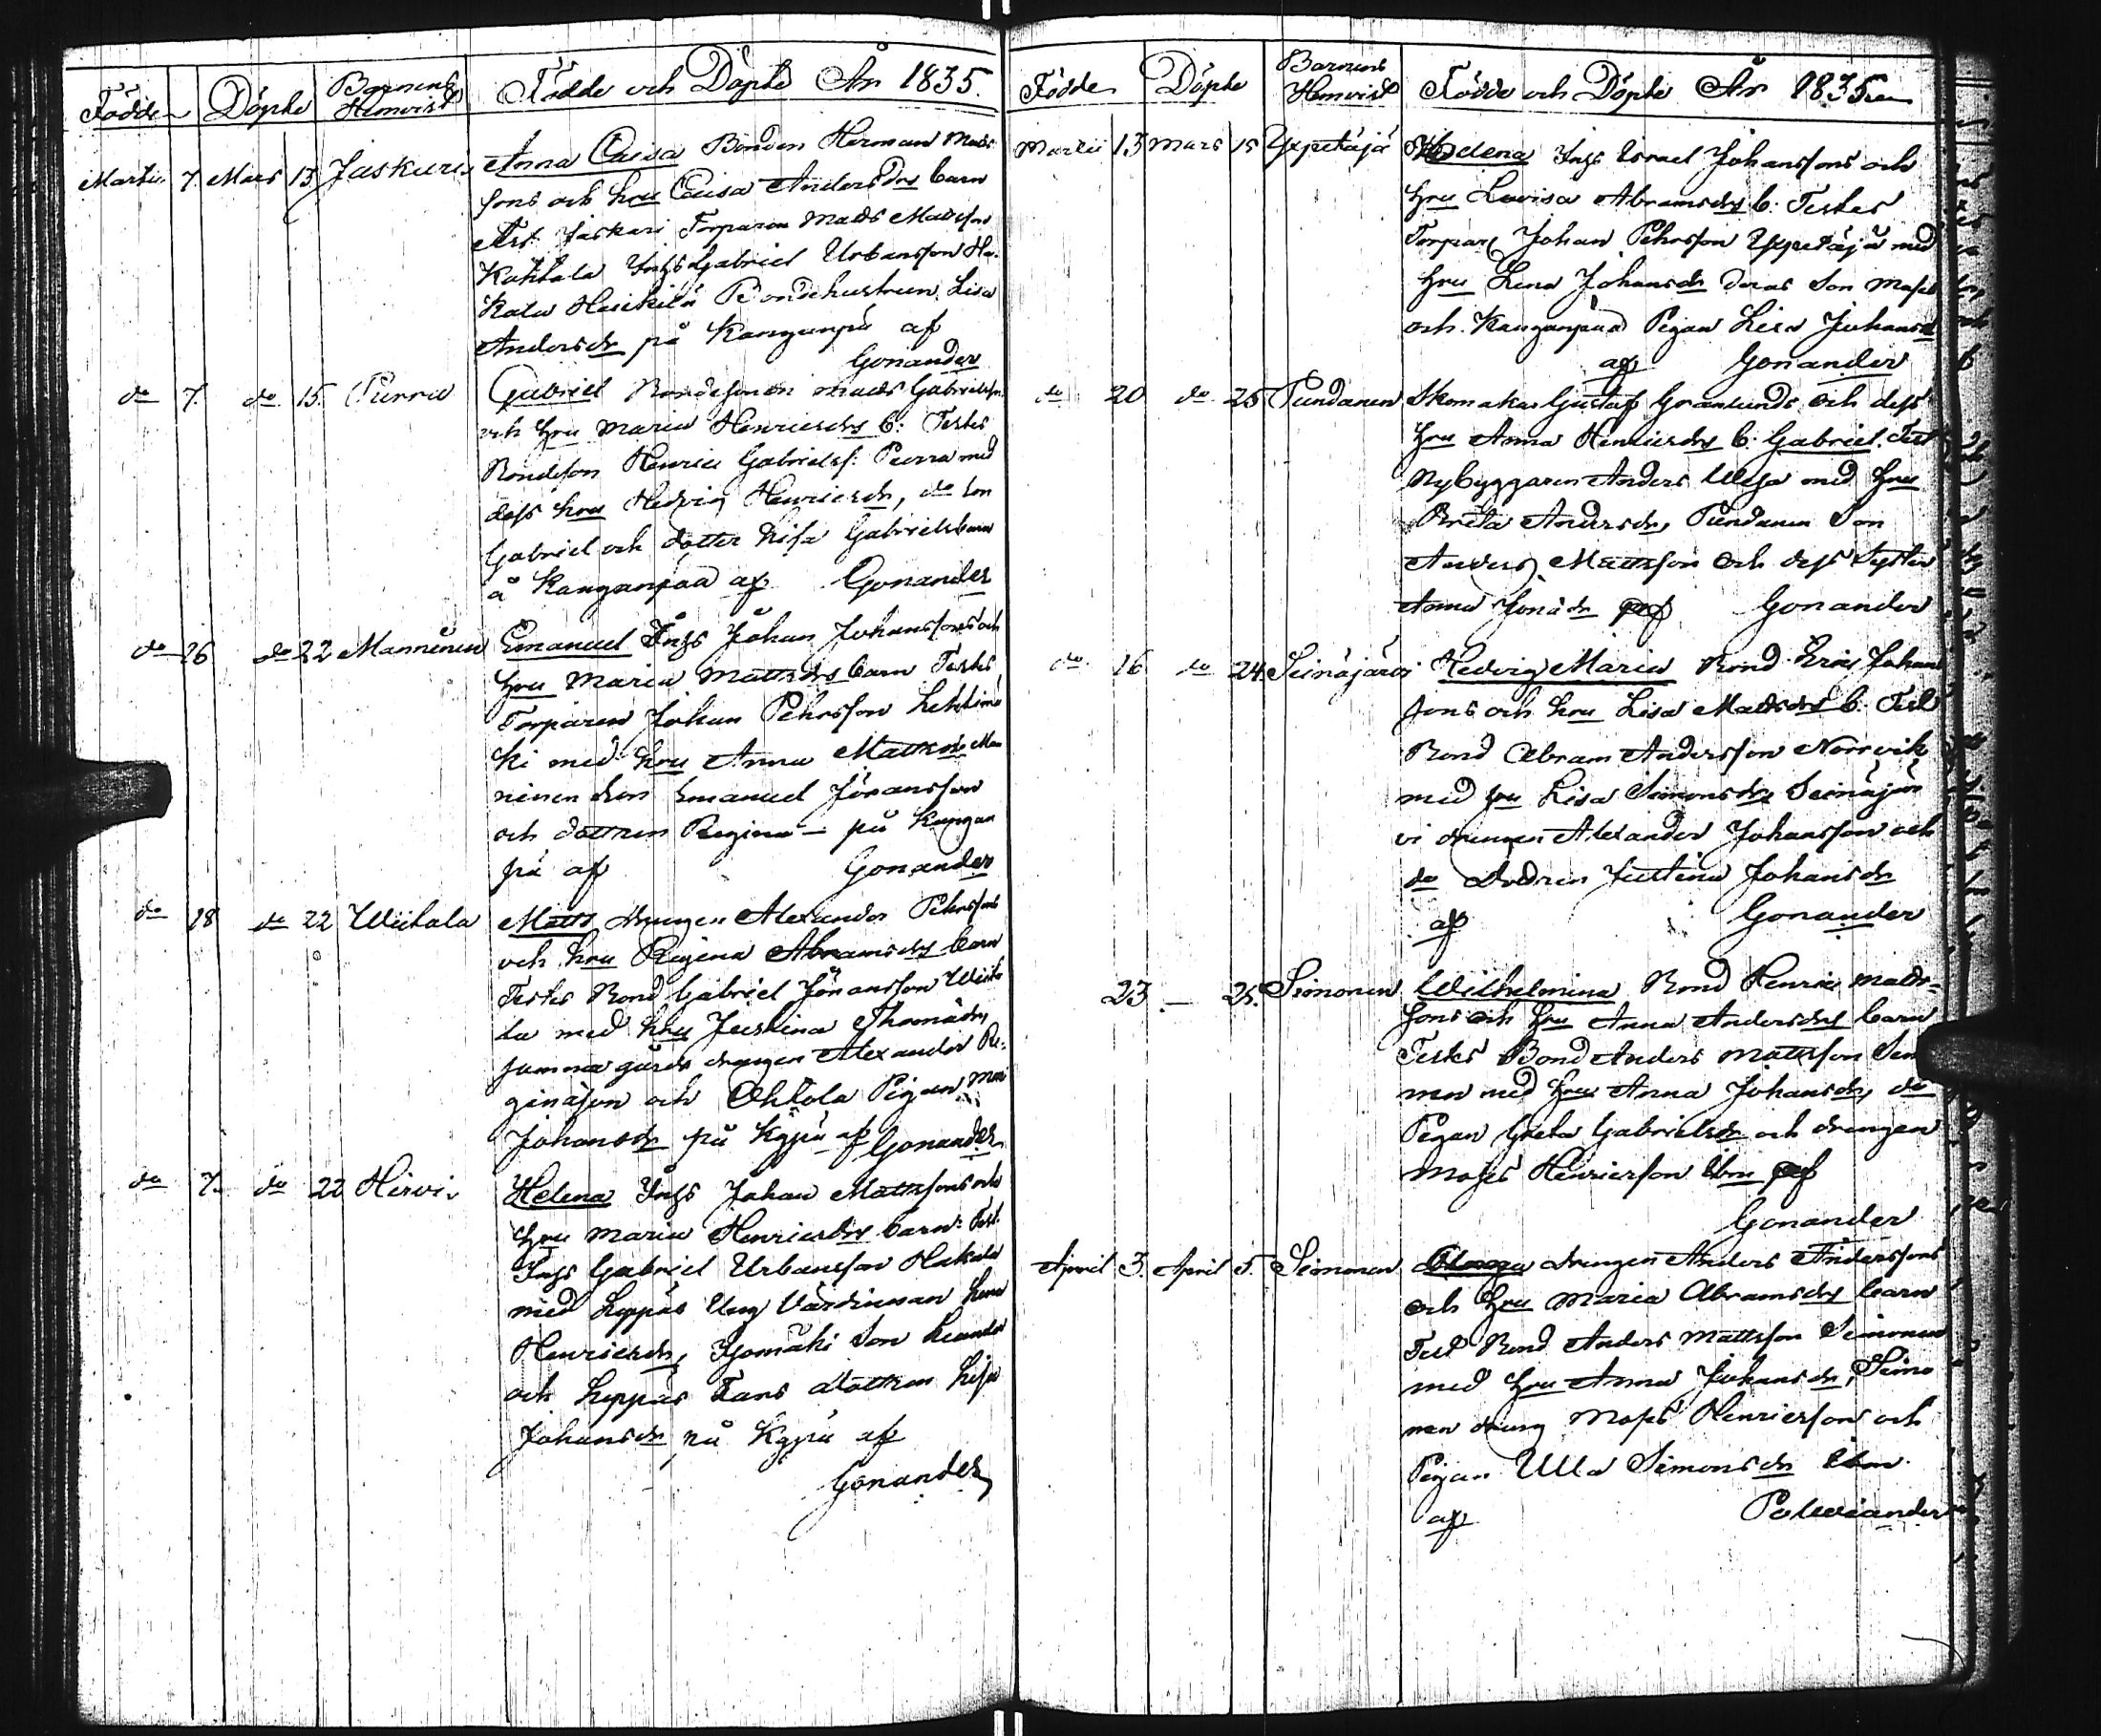 Födde Döpte Barnens Hemvist Födde och Döpte År 1835.
Martii 7. Mars 13 Jaskari Anna Caisa Bonden Herman Mats
sons och hru Caisa Andersdrs barn
Test. Jaskari Torparen Mads Madsson
Kahhala Inhs Gabriel Urbansson Ha-
kala Heickilä Bondehustrun Lisa
Andersdr på Kanganpä af
Gonander
do 7. do 15. Purra Gabriel Bondesonen Mads Gabrielss.
och hru Maria Henricsdrs b: Testes
Bondeson Henric Gabrielss: Purra med
dess hru Hedvig Henricsdr, do son
Gabriel och dotter Lisa Gabrielsbarn
å Kanganpää af Gonander
do 16 do 22 Manninen Emanuel Inhs Johan Johanssons och
hru Maria Mattsdrs barn Testes
Torparen Johan Pehrsson Lehtimä
ki med hru Anna Mattsdr Man
ninen son Emanuel Jöransson
och dottren Regina – på Kangan
pä af Gonander
do 18 do 22 Wiitala Matts drengen Alexander Pehrssons
och hru Regina Abramsdrs barn
Testes Bond Gabriel Jöransson Wiita
la med hru Justina Thomädr,
samma gårds drengen Alexander Re-
ginäson och Ohtola Pigan Mari
Johansdr på Kgpä af Gonander
do 7. do 22 Hirvi Helena Inhs Johan Mattssons och
hru Maria Henricsdrs barn: Test.
Inhs Gabriel Urbansson Hakala
med Leppäs Ung Värdinnan Lena
Henricsdr, Pjomäki Son Leander
och Leppäs Fans dottren Lisa
Johansdr på Kgpä af
Gonander
Födde Döpte Barnens Hemvist Födde och Döpte År 1835
Martii 13 Mars 15 Yxpetäjä Helena Inhs Israel Johanssons och
hru Lovisa Abramsdrs b. Testes
Torpar Johan Pehrsson Yxpetäjä med
hru Lena Johansdr deras Son Moses
och Kanganpää Pigan Lisa Johansd
af Gonander
do 20 do 25 Pundanen Skomakar Gustaf Granlunds och dess
hru Anna Henricsdrs b. Gabriel. Test
Nybyggaren Anders Wesa med hru
Breta Andersdr, Pundanen Son
Anders Mattsson och dess Syster
Anna Jonädr af Gonander
do 16 do 24. Seinäjärvi Hedvig Maria Bond Eric Johans
sons och hru Lisa Madsdrs b. Test
Bond Abram Andersson Norrvik
med hru Lisa Simonsdr, Seinäjär
vi drengen Alexander Johansson och
do Dottren Justina Johansdr
af Gonander
23 — 25. Simonen Wilhelmina Bond Henric Mads-
sons och hru Anna Andersdrs barn
Testes Bond Anders Mattsson Simo
nen med hru Anna Johansdr, do
Pigan Greta Gabrielsdr och drengen
Moses Henricsson ibm af
Gonander
April 3. April 5. Simonen drengen Anders Anderssons
och hru Maria Abramsdrs barn
Test Bond Anders Mattsson Simonen
med hru Anna Johansdr, Simo
nen dreng Moses Henricsson och
Pigan Ulla Simonsdr ibm.
af Polviander